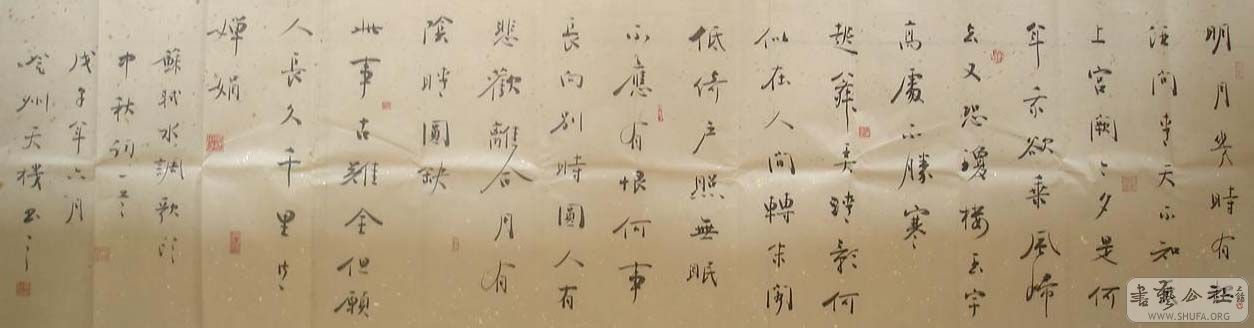 明月幾時有
酒問青天不知
上宮闕今夕是何
年我欲乘風歸
去又恐瓊樓玉宇
高處不勝寒
起舞弄清影何
似在人間轉朱閣
低綺戶照無眠
不應有恨何事
長向別時圓人有
悲歡離合月有
陰晴圓缺
此事古難全但願
人長久千里共
嬋娟
蘇軾水調歌頭
中秋詞一首
戊子年六月
州天書
書藝公社
WWW.SHUFA.ORG